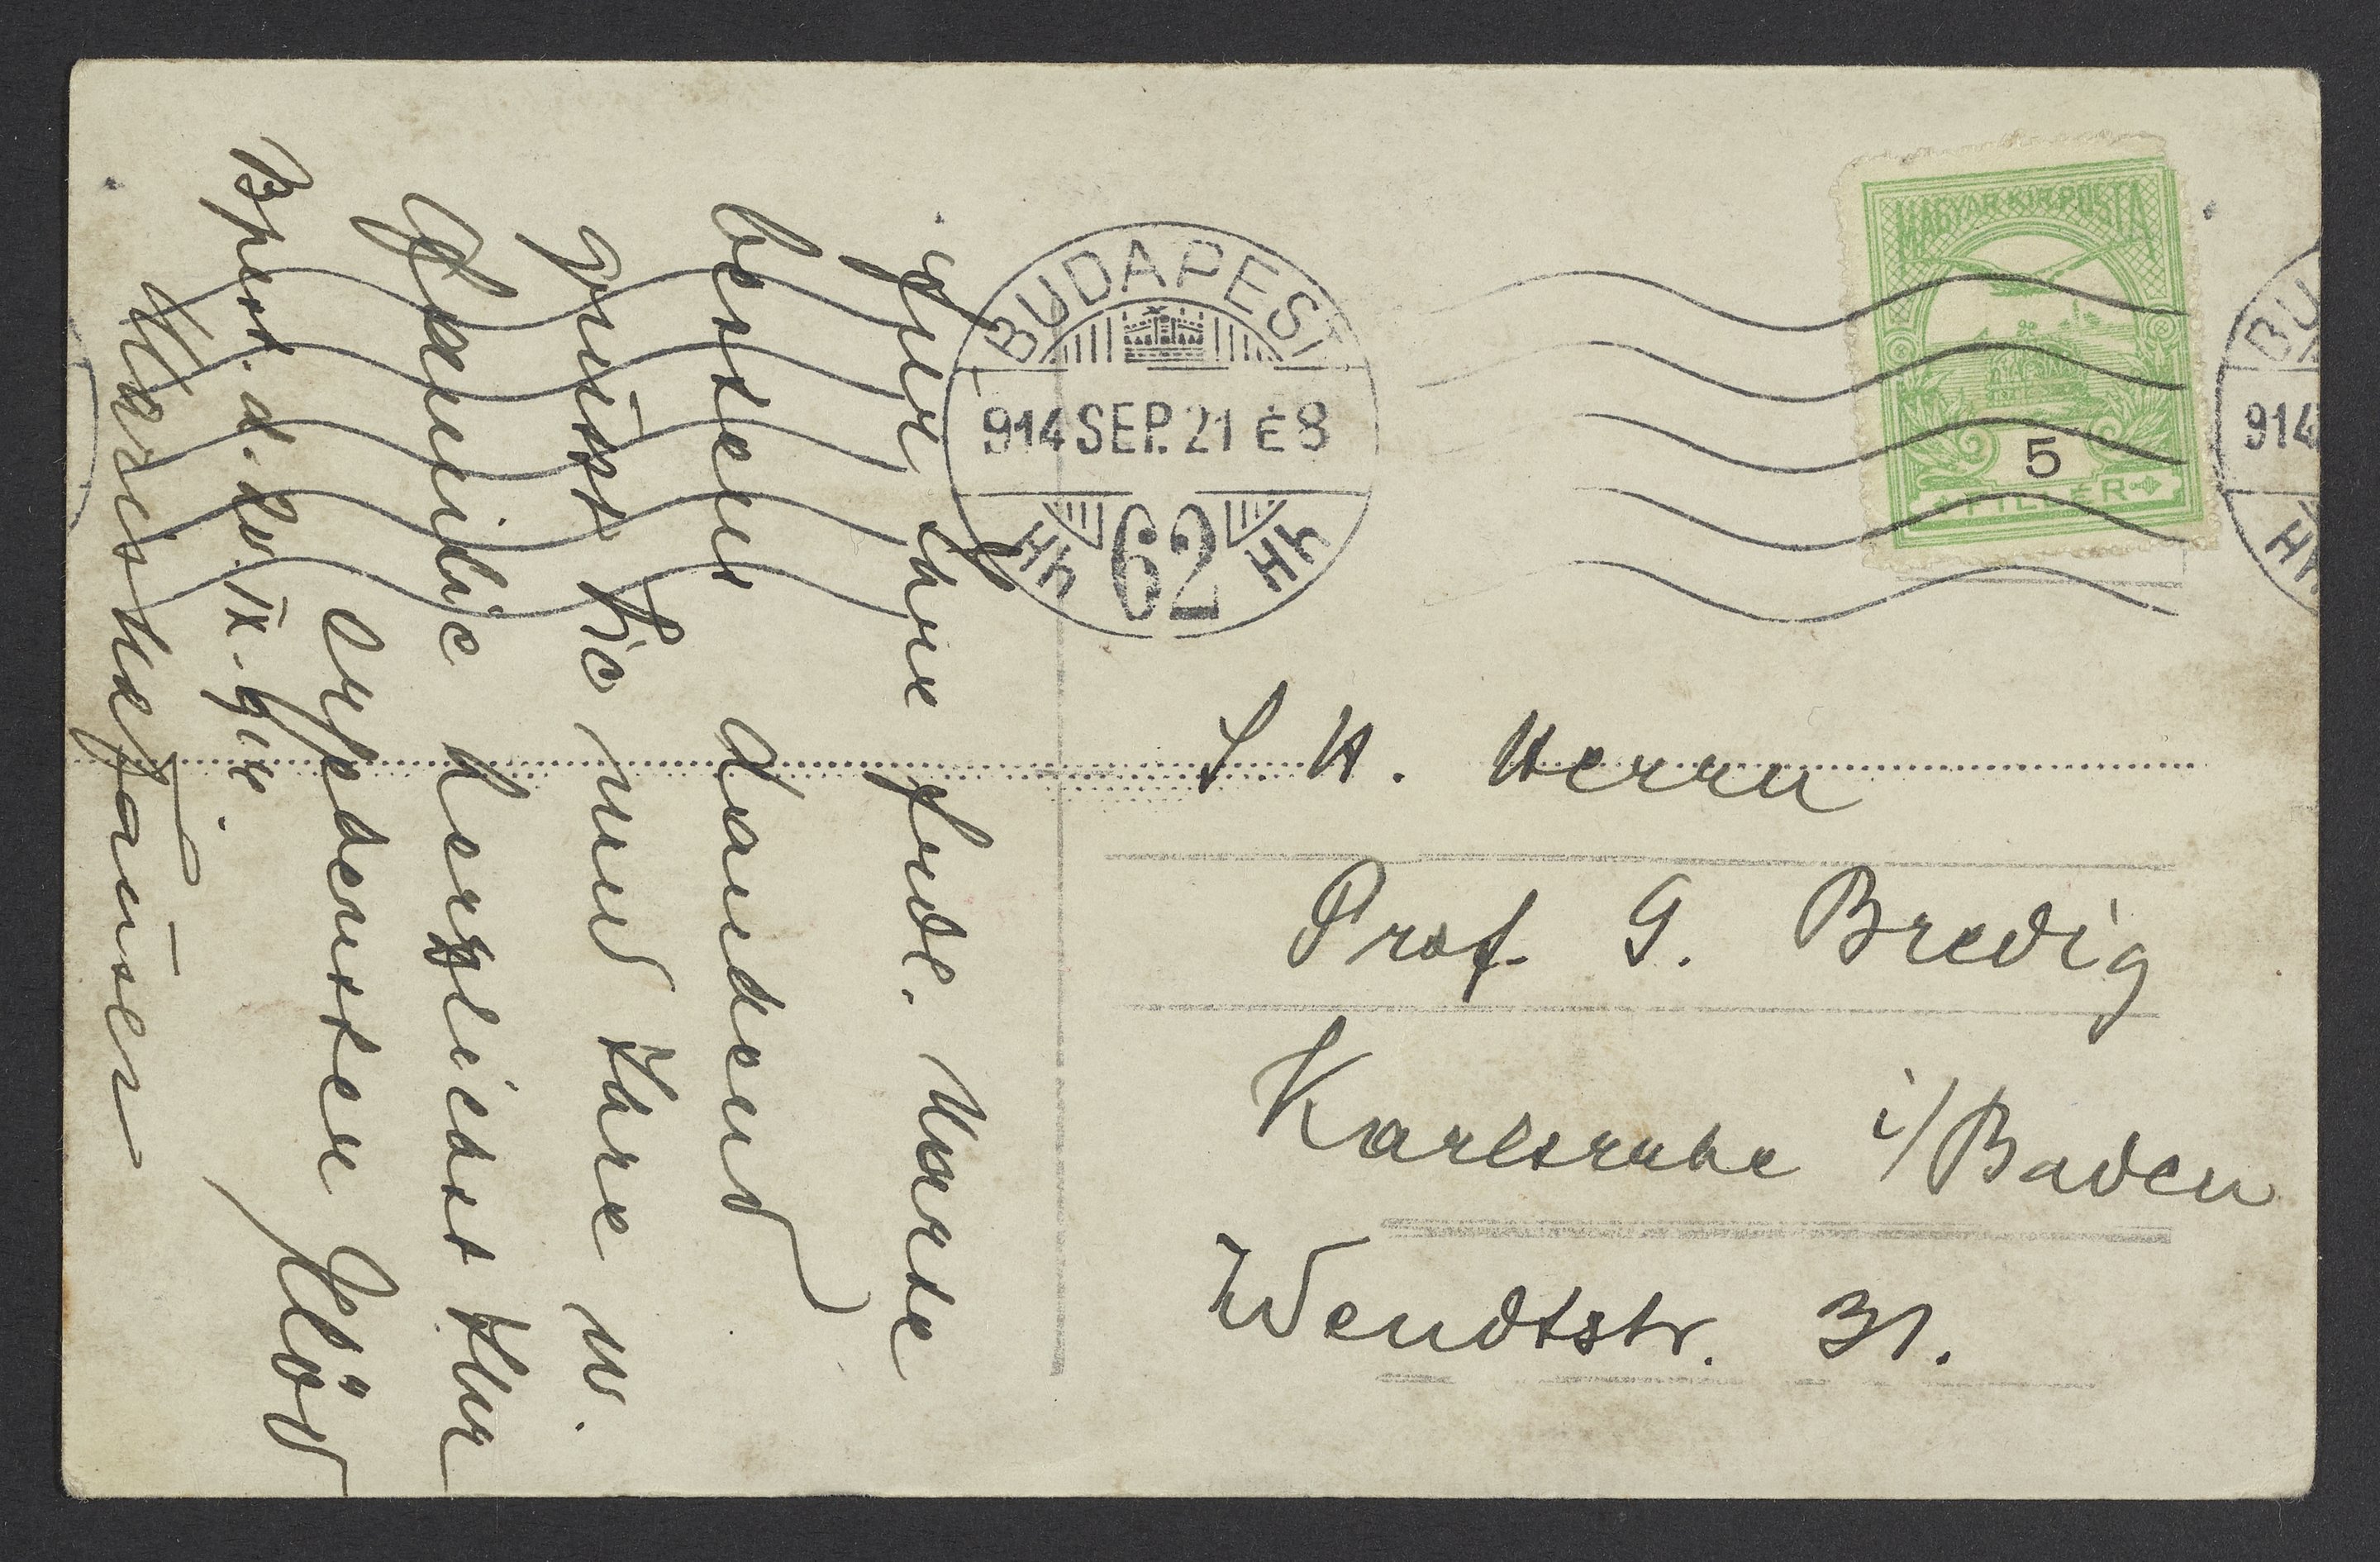 Für Ihre frdl. Karte
bestens dankend
grüsst Sie und Ihre w.
Familie herzlichst Ihr
ergebenster
Bpest. d. 20. IX. 914.
BUDAPEST
914 SEP. 21 É8
Hh 62 Hh
MAGYAR KIR. POSTA
5
FILLÉR
BU
914
Hh
S. H. Herrn
Prof. G. Bredig
Karlsruhe i/Baden
Wendtstr. 31.